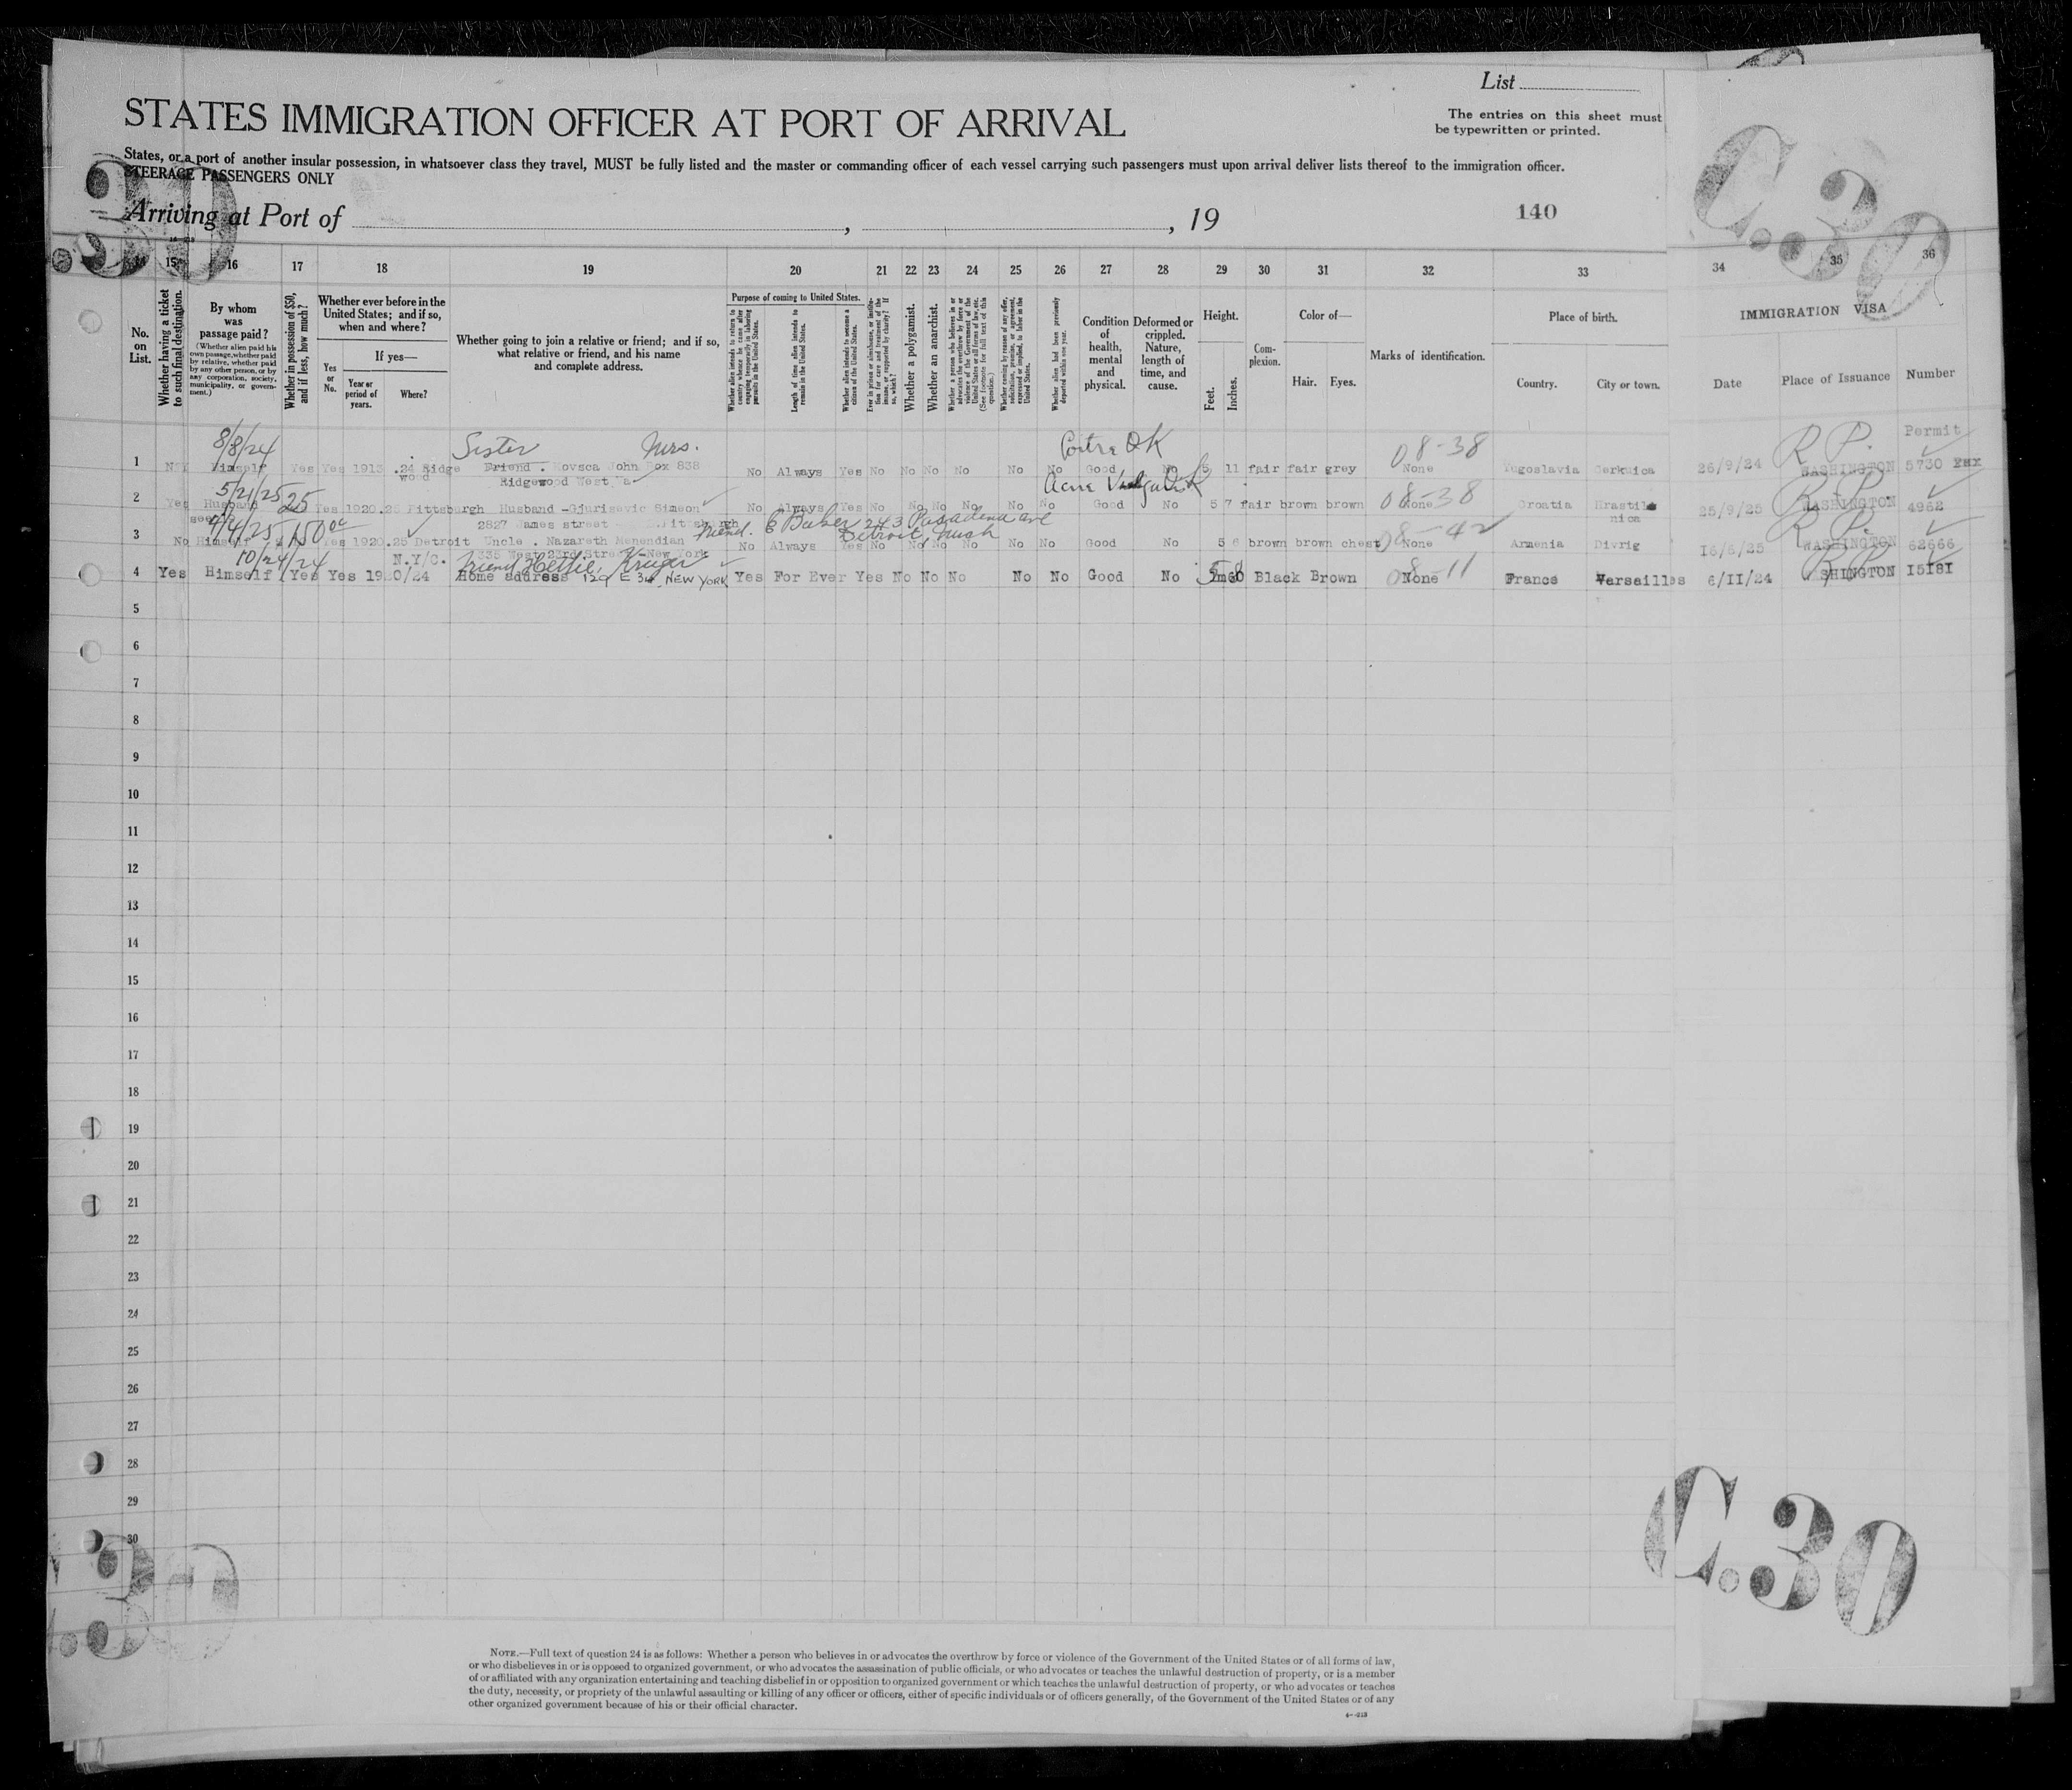 List
STATES IMMIGRATION OFFICER AT PORT OF ARRIVAL
The entries on this sheet must
be typewritten or printed.
States, or a port of another insular possession, in whatsoever class they travel, MUST be fully listed and the master or commanding officer of each vessel carrying such passengers must upon arrival deliver lists thereof to the immigration officer.
STEERAGE PASSENGERS ONLY
Arriving at Port of , , 19
140
C.30
15 16 17 18 19 20 21 22 23 24 25 26 27 28 29 30 31 32 33 34 35 36
No. on List.
Whether having a ticket to such final destination.
By whom was passage paid?
(Whether alien paid his own passage, whether paid by relative, whether paid by any other person, or by any corporation, society, municipality, or government.)
Whether in possession of $50, and if less, how much?
Whether ever before in the United States; and if so, when and where?
Yes or No.
If yes—
Year or period of years.
Where?
Whether going to join a relative or friend; and if so, what relative or friend, and his name and complete address.
Purpose of coming to United States.
Whether alien intends to return to country whence he came after engaging temporarily in laboring pursuits in the United States.
Length of time alien intends to remain in the United States.
Whether alien intends to become a citizen of the United States.
Ever in prison or almshouse, or institution for care and treatment of the insane, or supported by charity? If so, which?
Whether a polygamist.
Whether an anarchist.
Whether a person who believes in or advocates the overthrow by force or violence of the Government of the United States or all forms of law, etc. (See footnote for full text of this question.)
Whether coming by reason of any offer, solicitation, promise, or agreement, expressed or implied, to labor in the United States.
Whether alien had been previously deported within one year.
Condition of health, mental and physical.
Deformed or crippled. Nature, length of time, and cause.
Height.
Feet. Inches.
Complexion.
Color of—
Hair. Eyes.
Marks of identification.
Place of birth.
Country. City or town.
IMMIGRATION VISA
Date Place of Issuance Number
8/8/24 Sister Mrs. OK 08-38 R P. Permit
1 Himself Yes Yes 1913.24 Ridge wood Friend. Kovsca John Box 838 No Always Yes No No No No No No Good No 5 11 fair fair grey None Yugoslavia 26/9/24 WASHINGTON 5730
Ridgewood West Va
5/21/25 25 OK 08-38 R P.
2 Yes Husband Yes 1920.25 Pittsburgh Husband -Gjurisevic Simeon No Always Yes No No No No No No Good No 5 7 fair brown brown None Croatia Hrastilnica 25/9/25 WASHINGTON 4962
2827 James street Pittsburgh
4/4/25 150 00 friend. C Baker 243 Pasadena ave Detroit, Mich 08-42 R P.
3 No Himself Yes 1920.25 Detroit Uncle. Nazareth Menendian No Always Yes No No No No No No Good No 5 6 brown brown chest None Armenia Divrig 16/6/25 WASHINGTON 62666
335 West 23rd Street -New York
10/24/24 N.Y/C. friend Hettie, Kruger 5 8 08-11 R P
4 Yes Himself Yes Yes 1920/24 Home address 129 E 34. NEW YORK Yes For Ever Yes No No No No No Good No Black Brown None France Versailles 6/II/24 SHINGTON I5I8I
5
6
7
8
9
10
11
12
13
14
15
16
17
18
19
20
21
22
23
24
25
26
27
28
29
30
C.30
NOTE.—Full text of question 24 is as follows: Whether a person who believes in or advocates the overthrow by force or violence of the Government of the United States or of all forms of law,
or who disbelieves in or is opposed to organized government, or who advocates the assassination of public officials, or who advocates or teaches the unlawful destruction of property, or is a member
of or affiliated with any organization entertaining and teaching disbelief in or opposition to organized government or which teaches the unlawful destruction of property, or who advocates or teaches
the duty, necessity, or propriety of the unlawful assaulting or killing of any officer or officers, either of specific individuals or of officers generally, of the Government of the United States or of any
other organized government because of his or their official character.